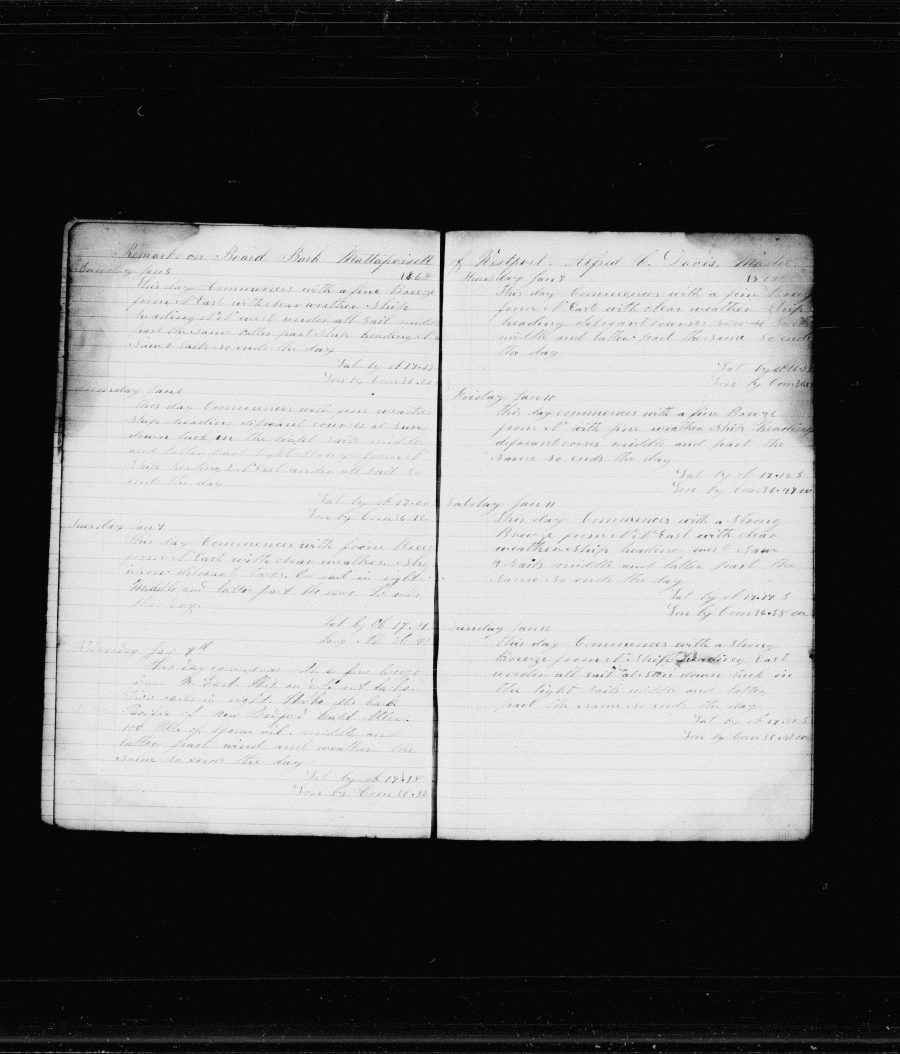 Remarks on Board Bark Mattapoisett
Sunday Jan 5 1868
This day Commences with a fine Breeze
from N East with clear weather Ship
heading N N West under all Sail middle
part the same latter part Ship heading
Saw 2 Sails So ends the day
Lat by ob 17.
Lon by Crom 36.
Monday Jan 6
this day Commences with fine weather
Ship heading diferant courses at Sun
down tuck in the light Sails middle
and latter part light Breeze from N
Ship heading E N East under all Sail So
ends the day
Lat by ob 17.00
Lon by Crom 36.16
Tuesday Jan 7
This day Commences with from Breeze
from N East with clear weather Ship
upon diferant tacks Six sail in sight
Middle and latter part the same So ends
this day
Lat by Ob 17.
Long
Jan 8th
This day commences with a fine Breeze
from N. East. Ship on diferent tacks
sails in sight. Spoke the bark
Pacific of New Bedford Capt Allen
100 bbls of sperm oil. middle and
latter part wind and weather the
same So ends the day
Lat by ob 17.18
Lon by Crom 36.
of Westport. Alfred C. Davis. Master
Thursday Jan 9 18
This day Commences with a fine Breeze
from N East with clear weather Ship
heading diferant courses saw Sails
middle and latter part the same So ends
the day
Lat by ob
Lon by Crom
Friday Jan 10
this day commences with a fine Breeze
from N with fine weather Ship heading
diferant corses middle and part the
same So ends the day
Lat by ob 17.19 S
Lon by Crom 36.47 00
Satday Jan 11
This day Commences with a Strong
Breeze from N N East with clear
weather Ship heading west Saw
4 Sails middle and latter part the
same So ends the day
Lat by ob 17.17 S
Lon by Crom 36.58 00
Sunday Jan 12
this day Commences with a Strong
Breeze from N Ship heading East
under all sail at Sun down tuck in
the light Sails middle and latter
part the same So ends the day
Lat by ob 17. S
Lon by Crom 36.